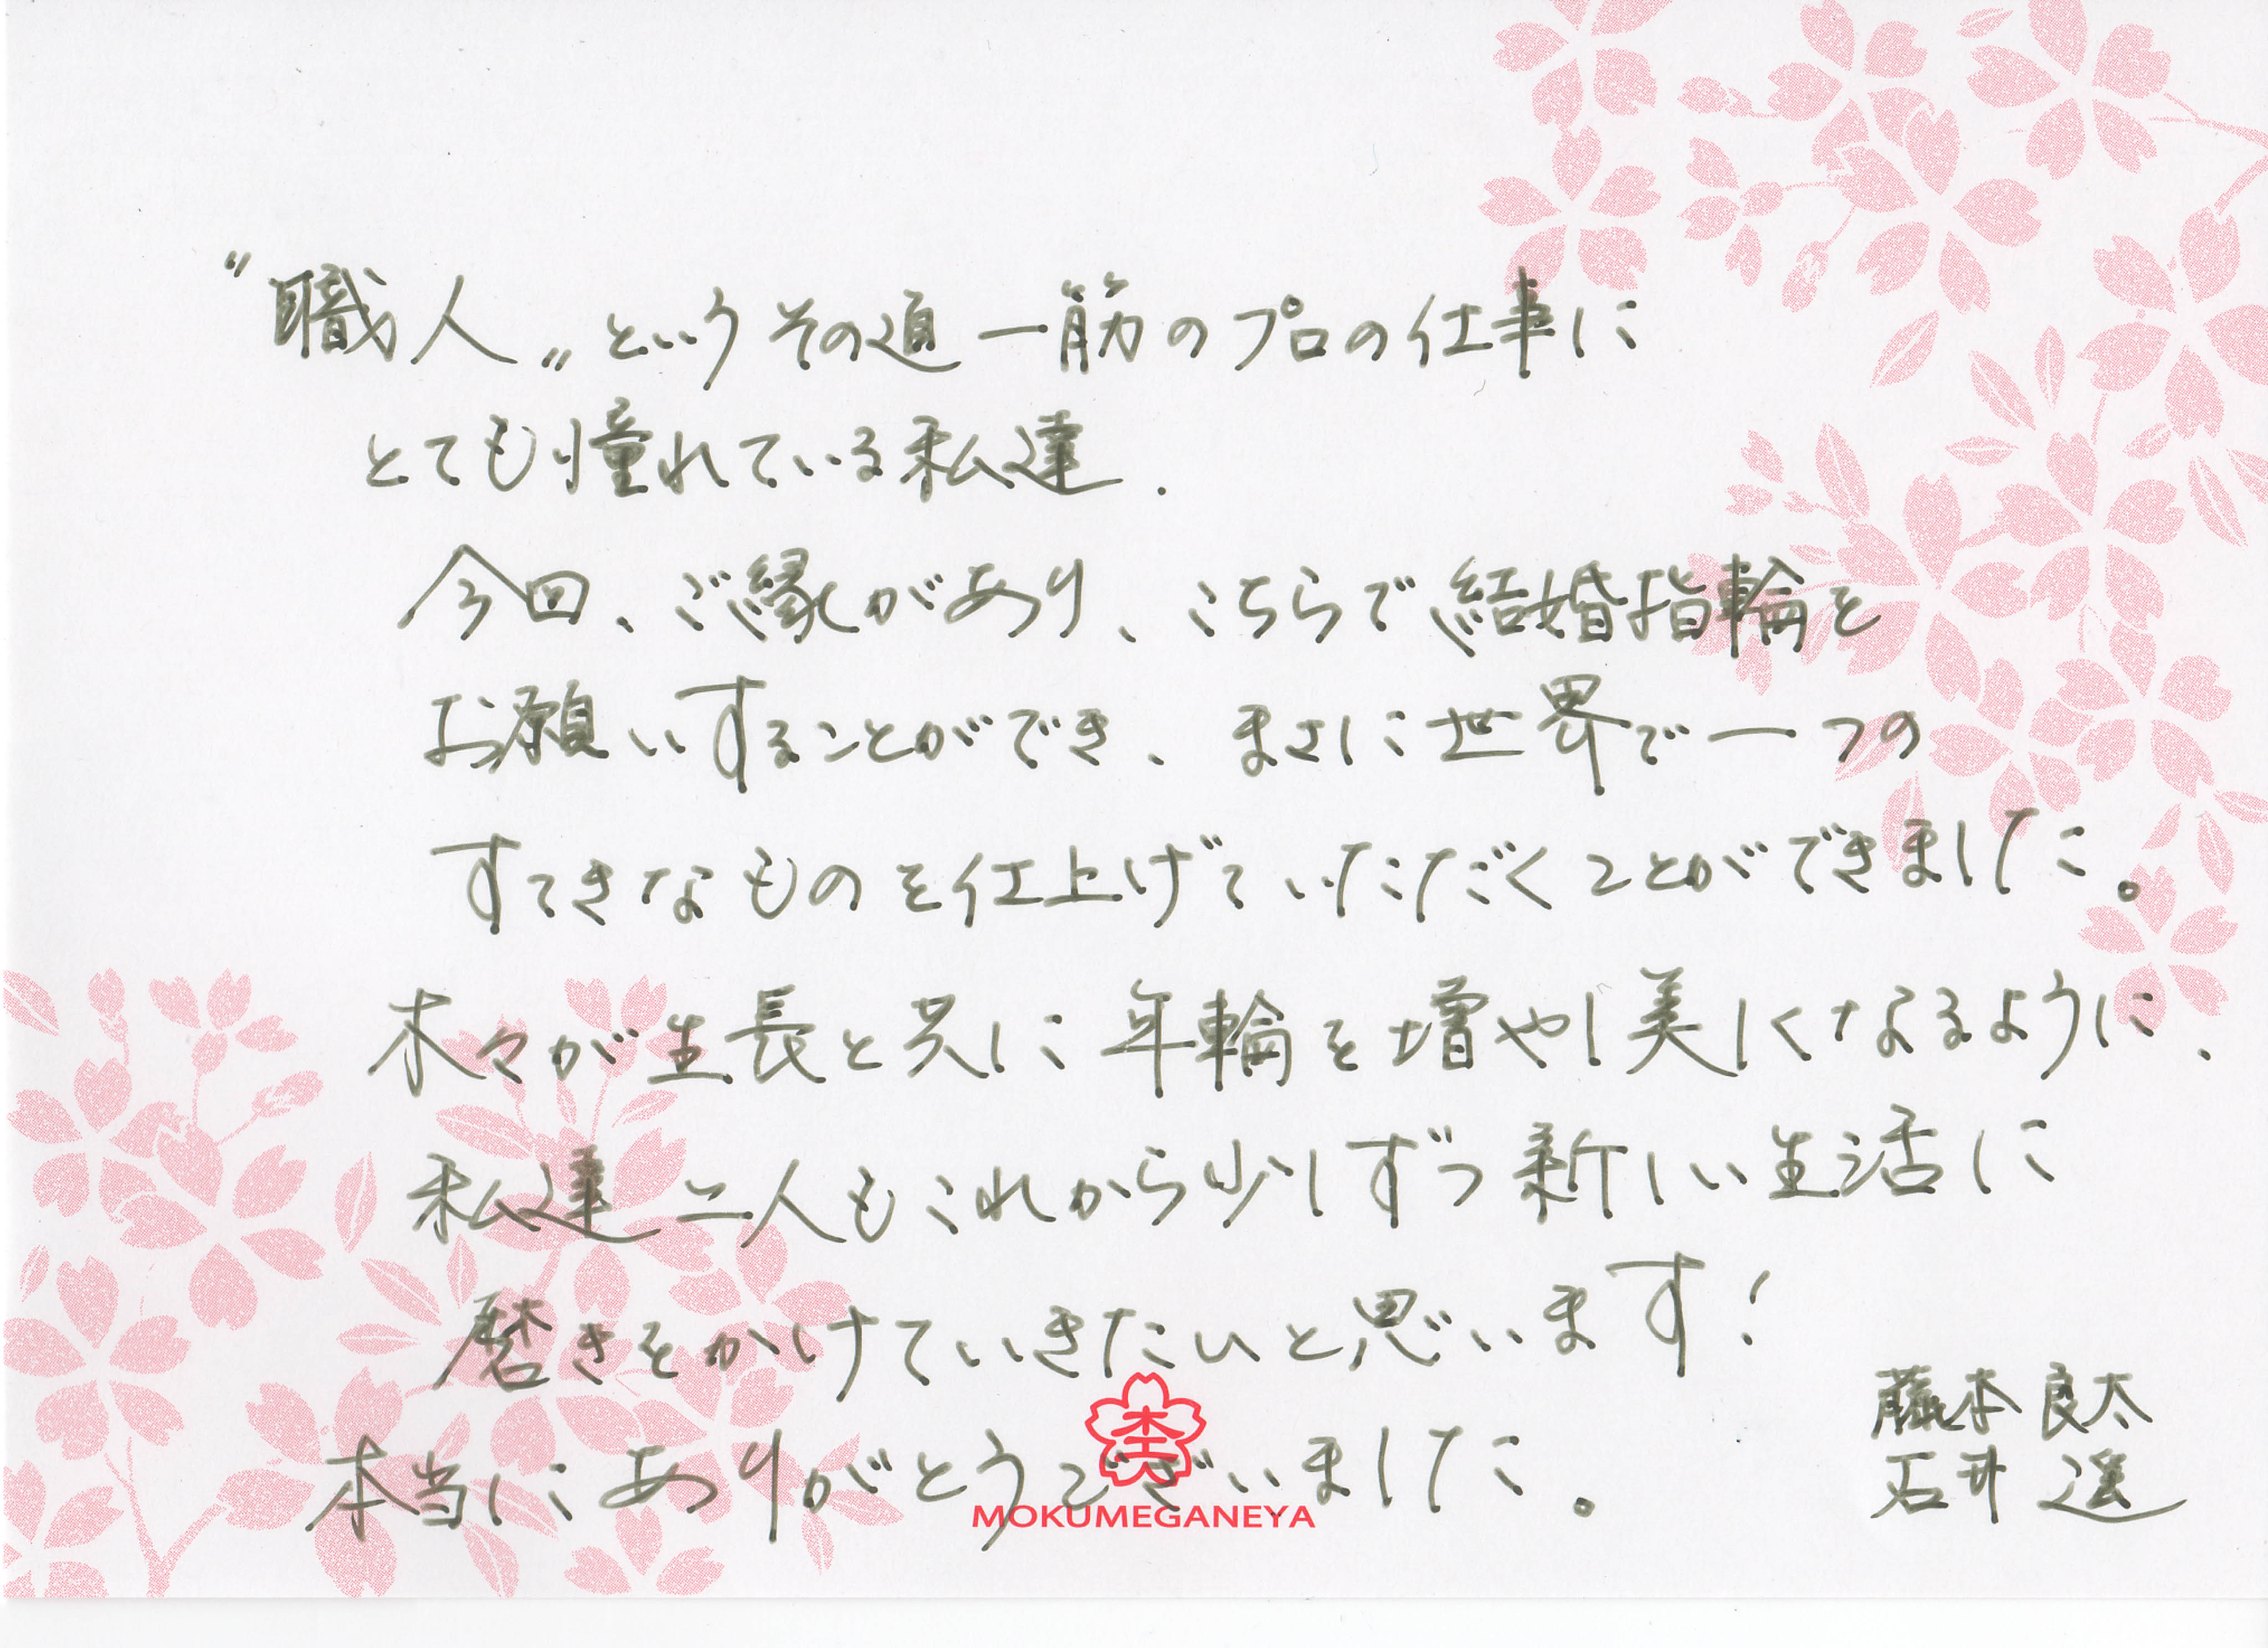 〝職人〟というその道一筋のプロの仕事に
とても憧れている私達.
今回、ご縁があり、こちらで結婚指輪を
お願いすることができ、まさに世界で一つの
すてきなものを仕上げていただくことができました。
木々が生長と共に年輪を増やし美しくなるように、
私達二人もこれから少しずつ新しい生活に
磨きをかけていきたいと思います!
本当にありがとうございました。
藤本良太
石井遥
MOKUMEGANEYA